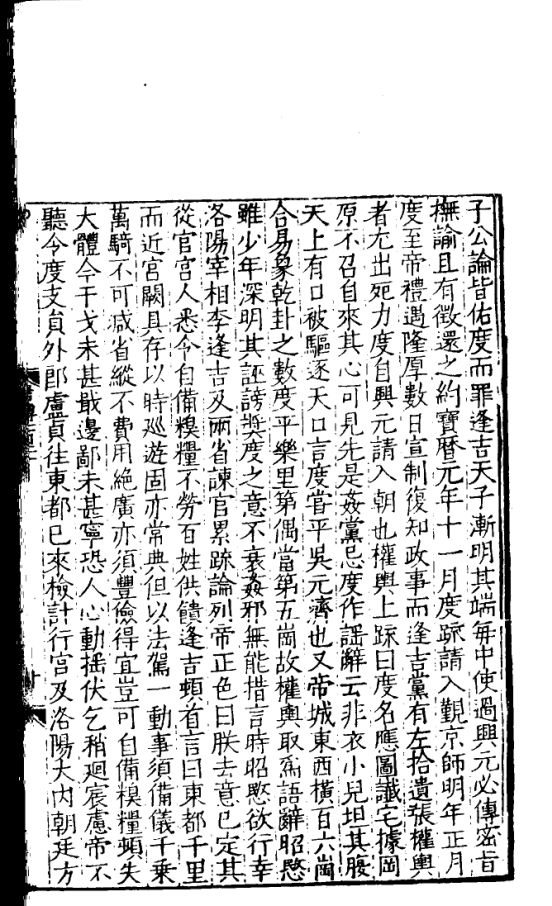 子公論皆佑度而罪逢吉天子漸明其端每中使過興元必傳密旨
撫諭且有徵還之約寶曆元年十一月度䟽請入覲京師明年正月
度至帝禮遇隆厚數日宣制復知政事而逢吉黨有左拾遺張權輿
者尤出死力度自興元請入朝也權輿上䟽曰度名應圖讖宅據岡
原不召自來其心可見先是姦黨忌度作謡辭云非衣小兒坦其腹
天上有口被驅逐天口言度甞平吳元濟也又帝城東西橫百六崗
合易象乾卦之數度平樂里第偶當第五崗故權輿取爲語辭昭愍
雖少年深明其誣謗奬度之意不衰姦邪無能措言時昭愍欲行幸
洛陽宰相李逢吉及兩省諫官累䟽論列帝正色曰朕去意已定其
從官宫人悉令自備糗糧不勞百姓供饋逢吉頓首言曰東都千里
而近宮闕具存以時廵遊固亦常典但以法駕一動事須備儀千乗
萬騎不可减省縱不費用絶廣亦須豐儉得宜豈可自備糗糧頓失
大體今干戈未甚戢邊鄙未甚寧恐人心動摇伏乞稍廻宸慮帝不
聽令度支員外郎盧貞往東都已來檢計行宫及洛陽大内朝廷方